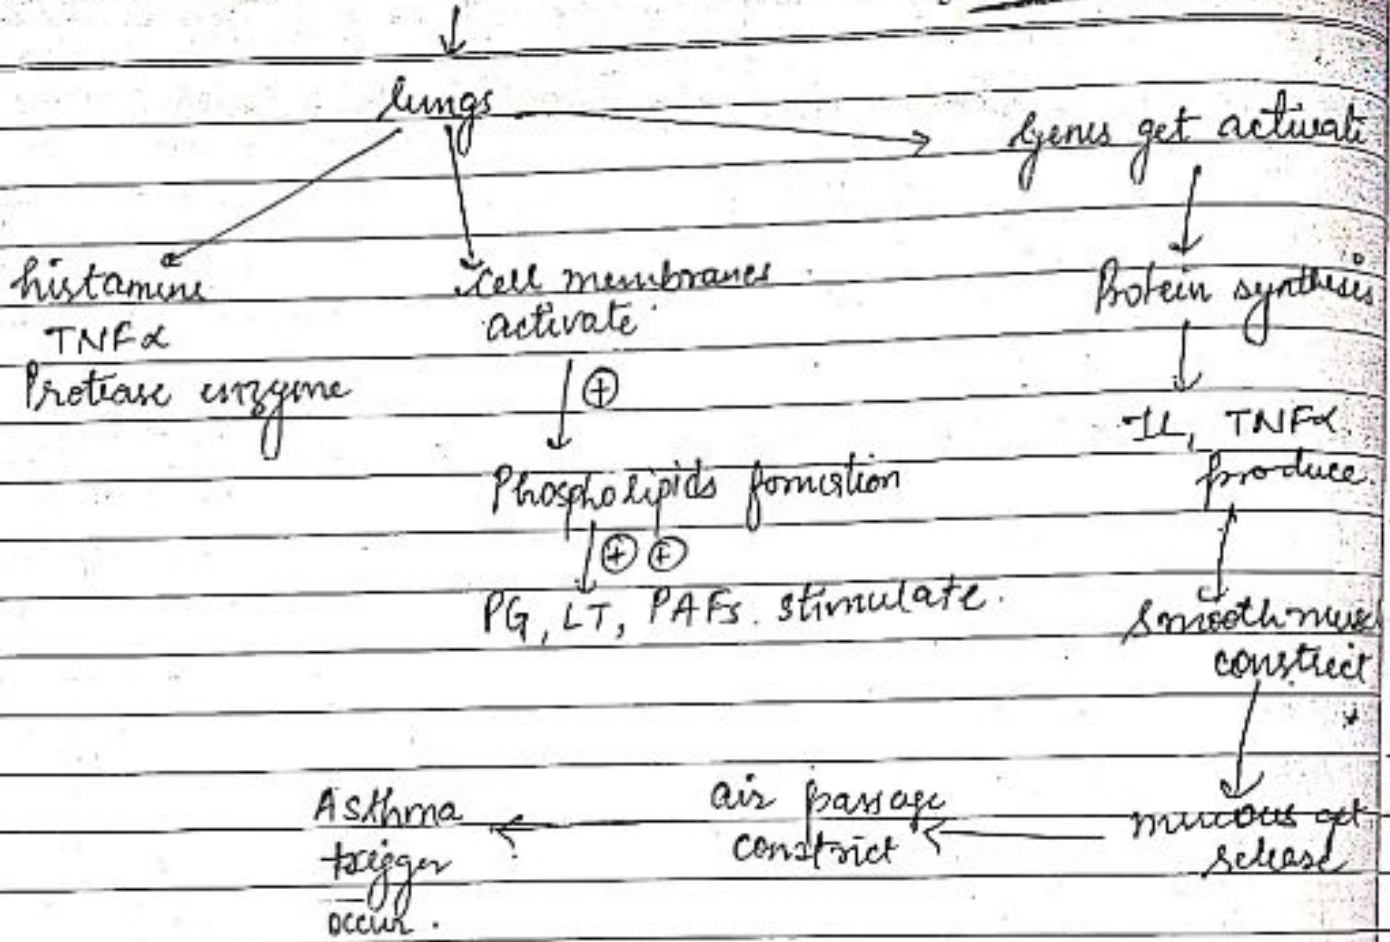 lungs
Genes get activate
histamine
TNFα
Protease enzyme
Cell membranes
activate
⊕
Protein synthesis
IL, TNFα
produce
Phospholipids formation
⊕ ⊕
PG, LT, PAFs. stimulate.
Smooth musc
constrict
mucous get
release
air passage
constrict
Asthma
trigger
occur.